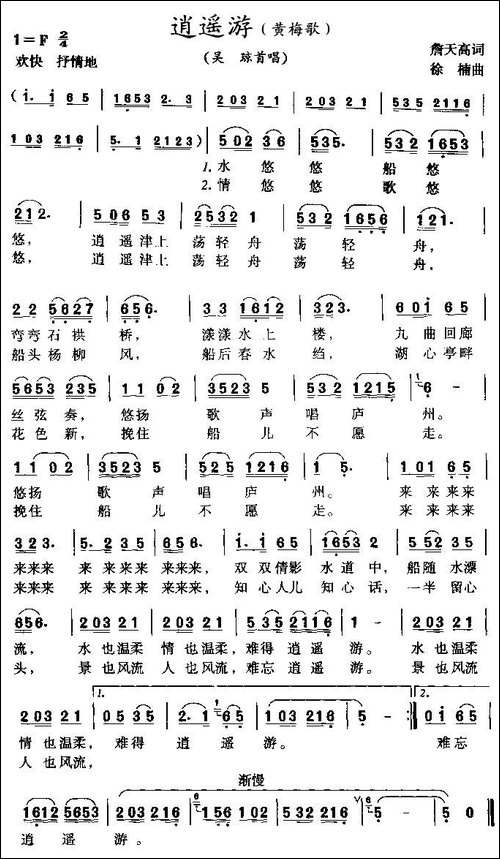 逍遥游（黄梅歌）
1＝F 2/4
（吴 琼首唱）
詹天高词
欢快 抒情地
徐 楠曲
( i. i 6 5 | 1653 2. 3 | 2 03 21 | 2 03 21 | 5 35 2116 |
1 03 216 | 5. 1 2123 ) | 5 02 36 | 535. | 532 1653 |
1.水 悠 悠 船 悠
2.情 悠 悠 歌 悠
212. | 506 53 | 2532 1 | 532 1656 | 121. |
悠， 逍 遥 津上 荡轻舟 荡 轻 舟，
悠， 逍 遥 津上 荡轻舟 荡 轻 舟，
2 2 5627 | 656. | 33 1612 | 323. | 60i 65 |
弯弯石拱 桥， 漾漾水上 楼， 九 曲回廊
船头杨柳 风， 船后春水 绉， 湖 心亭畔
5653 235 | 1102 | 3523 5 | 532 1215 | 6 - |
丝弦奏， 悠扬 歌 声 唱庐 州。
花色新， 挽住 船 儿 不愿 走。
1102 | 3523 5 | 502 1216 | 1 5. | 101 65 |
悠扬 歌 声 唱庐 州。 来 来来来
挽住 船 儿 不愿 走。 来 来来来
323. | 5. 2 35 | 5. 2 35 | 656. | i. i 65 | 1653 2. | 5 52 35 |
来来来 来 来来来 来 来来来 来来来， 双 双情影 水道中， 船随水漂
来来来 来 来来来 来 来来来 来来来， 知 心人儿 知心话， 一半留心
656. | 203 21 | 203 21 | 535 2116 | 1 - | 203 21 |
流， 水 也温柔 情 也温柔， 难得 逍遥 游。 水 也温柔
头， 景 也风流 人 也风流， 难忘 逍遥 游。 景 也风流
1. 2.
203 21 | 05 35 | 2. 1 65 | 1 - | 103 216 | 5 - :| 0i 65 |
情 也温柔， 难得 逍 遥 游。 难忘
人 也风流，
渐慢
1612 5653 | 203 216 | 156 102 | 103 216 | 5 - | 5 0 ‖
逍 遥 游。